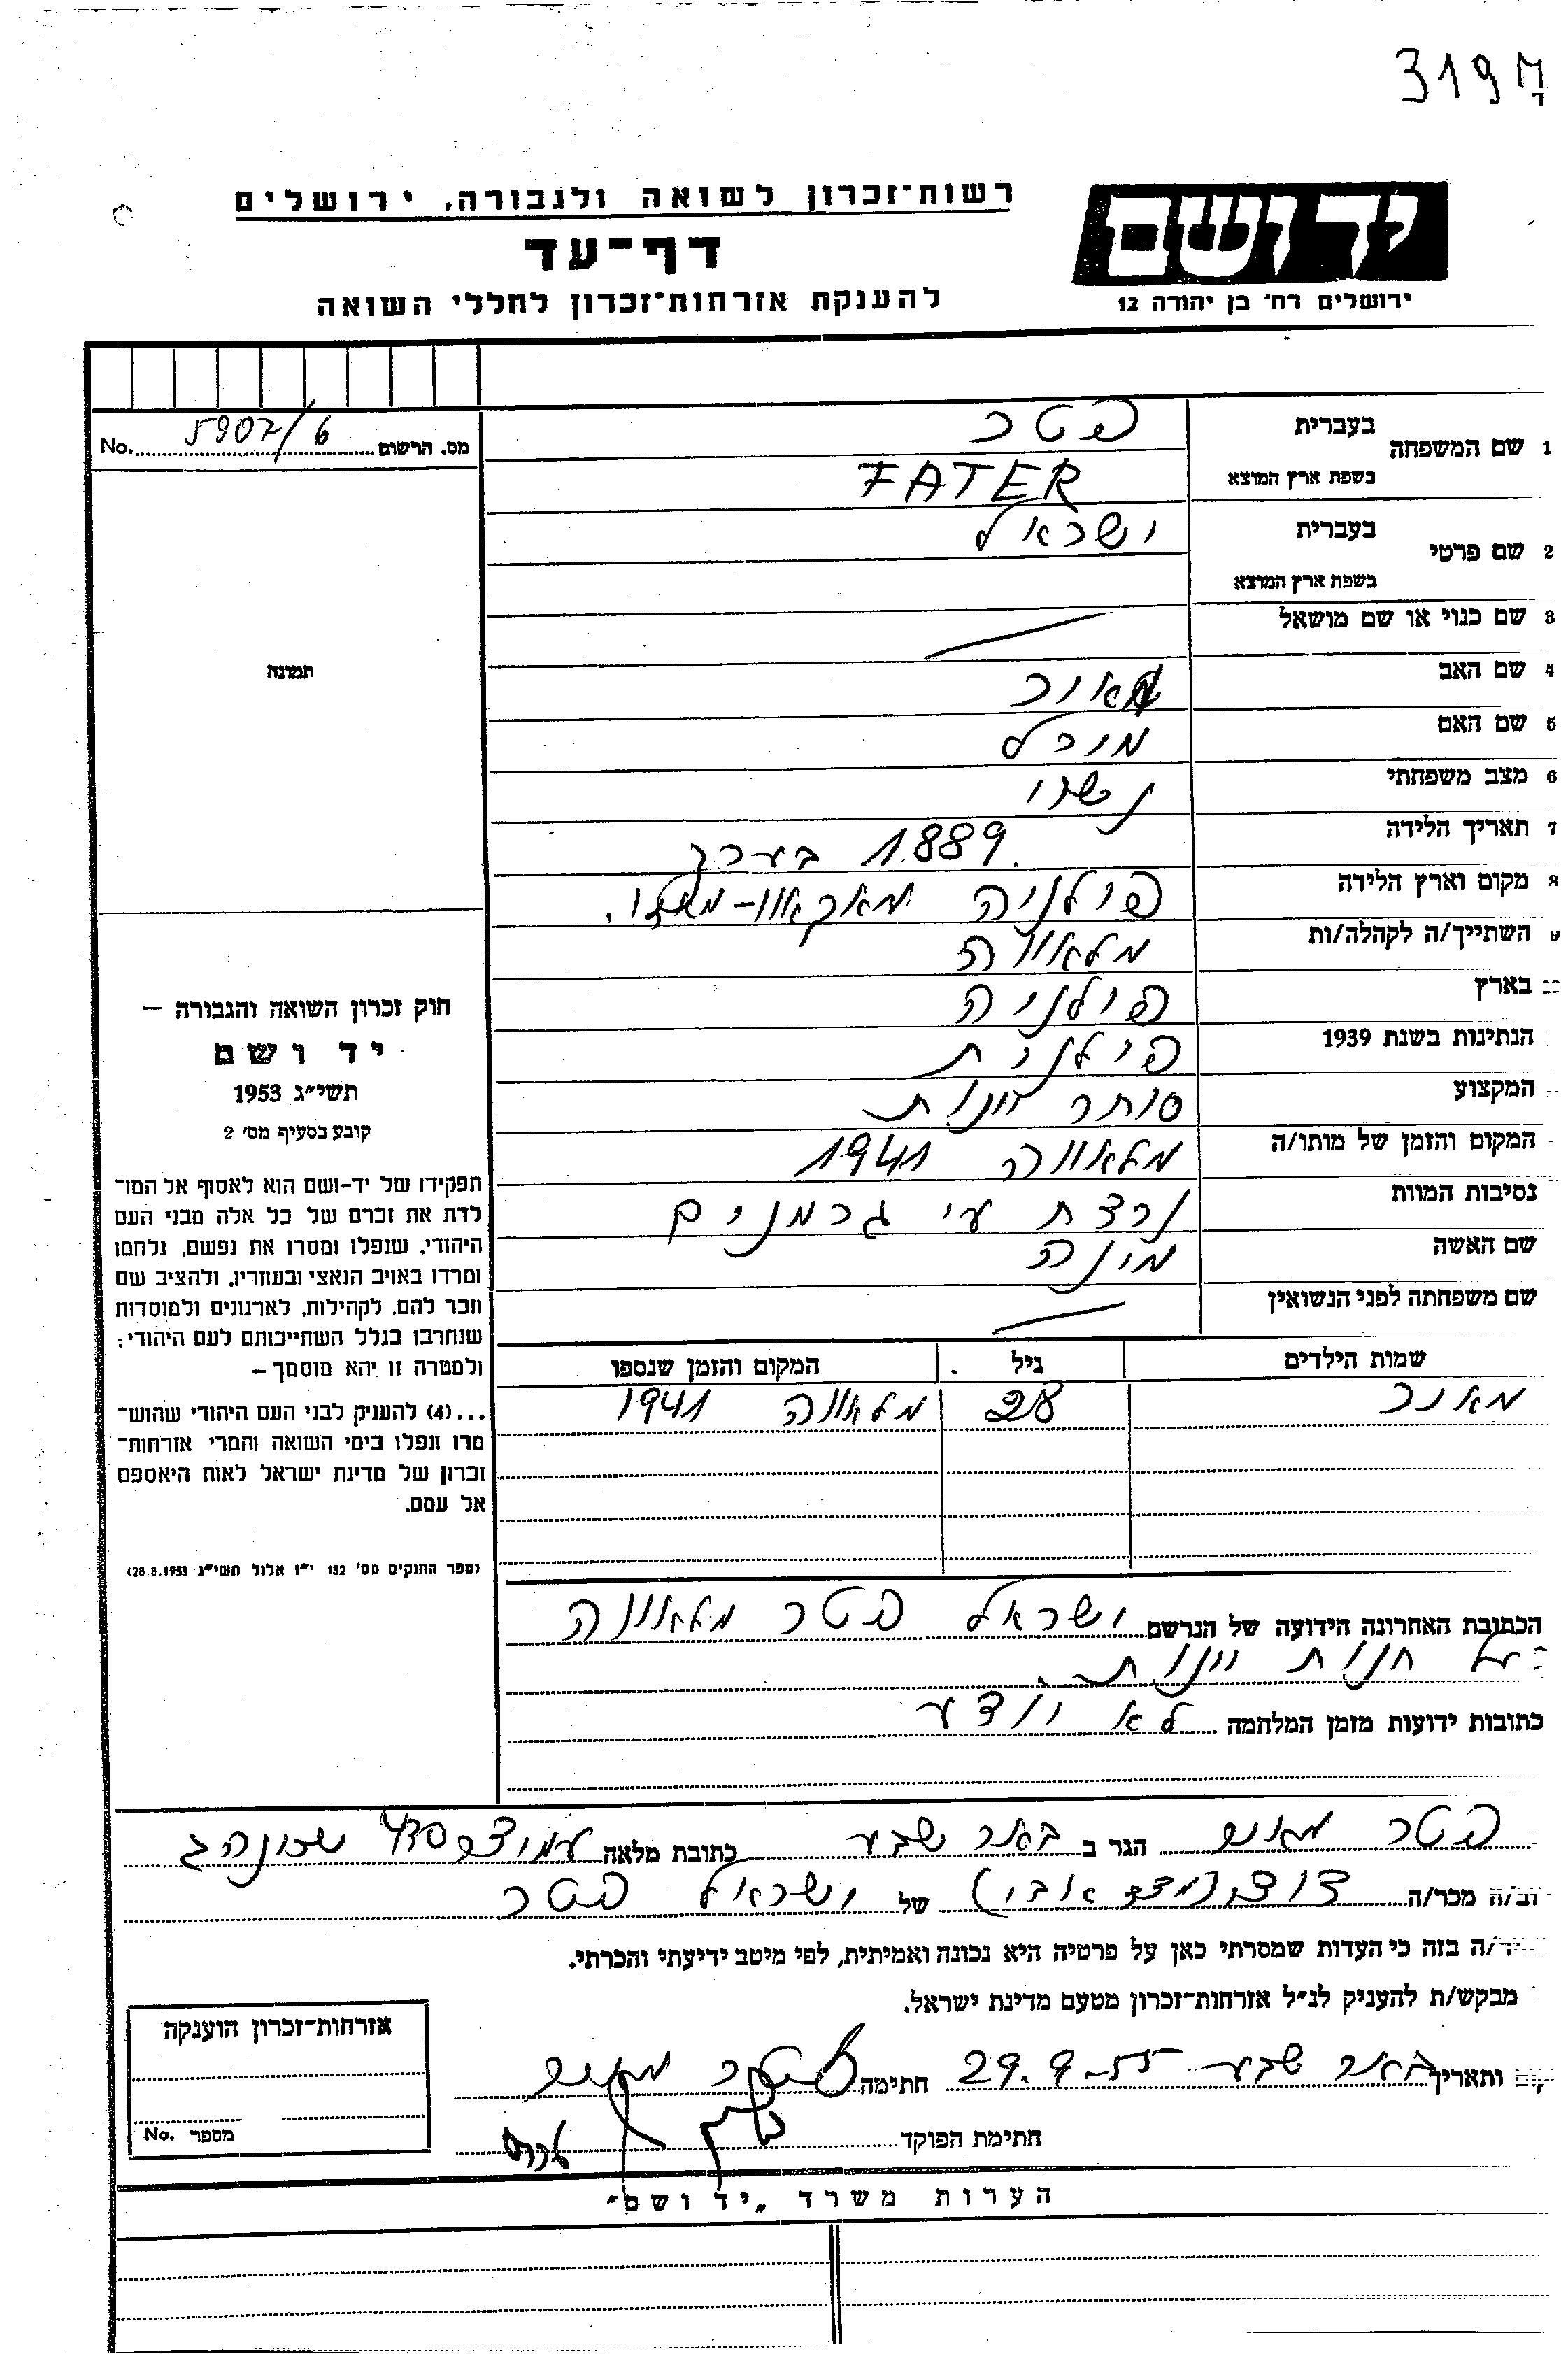 319 ק
רשות־זכרון לשואה ולגבורה, ירושלים
יד ושם
דף־עד
ירושלים רח׳ בן יהודה 12
להענקת אזרחות־זכרון לחללי השואה
מס. הרשום 5907/6 No.
1 שם המשפחה בעברית פטר
בשפת ארץ המוצא FATER
2 שם פרטי בעברית ישראל
בשפת ארץ המוצא
3 שם כנוי או שם מושאל
תמונה
4 שם האב מאיר
5 שם האם מירל
6 מצב משפחתי נשוי
7 תאריך הלידה 1889 בערך
8 מקום וארץ הלידה פולניה מאקאוו-מאזוו.
9 השתייך/ה לקהלה/ות מלאווה
10 בארץ פולניה
הנתינות בשנת 1939 פולנית
המקצוע סוחר יינות
המקום והזמן של מותו/ה מלאווה 1941
נסיבות המוות נרצח ע״י גרמנים
שם האשה מינה
שם משפחתה לפני הנשואין
שמות הילדים גיל המקום והזמן שנספו
מאיר 28 מלאווה 1941
חוק זכרון השואה והגבורה —
יד ושם
תשי״ג 1953
קובע בסעיף מס׳ 2
תפקידו של יד-ושם הוא לאסוף אל המו־
לדת את זכרם של כל אלה מבני העם
היהודי, שנפלו ומסרו את נפשם, נלחמו
ומרדו באויב הנאצי ובעוזריו, ולהציב שם
וזכר להם, לקהילות, לארגונים ולמוסדות
שנחרבו בגלל השתייכותם לעם היהודי;
ולמטרה זו יהא מוסמך —
...(4) להעניק לבני העם היהודי שהוש־
מדו ונפלו בימי השואה והמרי אזרחות־
זכרון של מדינת ישראל לאות היאספם
אל עמם.
(ספר החוקים מס׳ 132 י״ז אלול תשי״ג 28.8.1953)
הכתובת האחרונה הידועה של הנרשם ישראל פטר מלאווה
חנות יינות
כתובות ידועות מזמן המלחמה לא יודע
פטר הגר ב באר שבע כתובת מלאה 430 שכונה ג
מכר/ה דוד (מצד אבי) של ישראל פטר
בזה כי העדות שמסרתי כאן על פרטיה היא נכונה ואמיתית, לפי מיטב ידיעתי והכרתי.
מבקש/ת להעניק לנ״ל אזרחות־זכרון מטעם מדינת ישראל.
ותאריך באר שבע 29.9.55 חתימה פטר
חתימת הפוקד
אזרחות־זכרון הוענקה
מספר No.
הערות משרד „יד ושם״